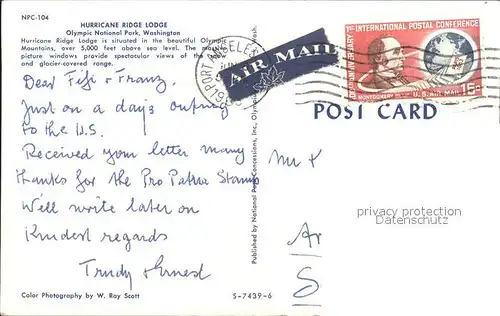 NPC-104
HURRICANE RIDGE LODGE
Olympic National Park, Washington
Hurricane Ridge Lodge is situated in the beautiful Olympic
Mountains, over 5,000 feet above sea level. The massive
picture windows provide spectacular views of the snow
and glacier-covered range.
Dear Fifi + Franz,
Just on a days outing
to the U.S.
Received your letter many
thanks for the Pro Patria Stamps
We'll write later on
Kindest regards
Trudy + Ernest
Color Photography by W. Ray Scott
S-7439-6
Published by National Park Concessions, Inc., Olympic
PORT ANGELES
AIR MAIL
1ST INTERNATIONAL POSTAL CONFERENCE
CENTENARY
MONTGOMERY
U.S. AIR MAIL 15c
POST CARD
Mr +
privacy protection
VERMEIDEN.COM